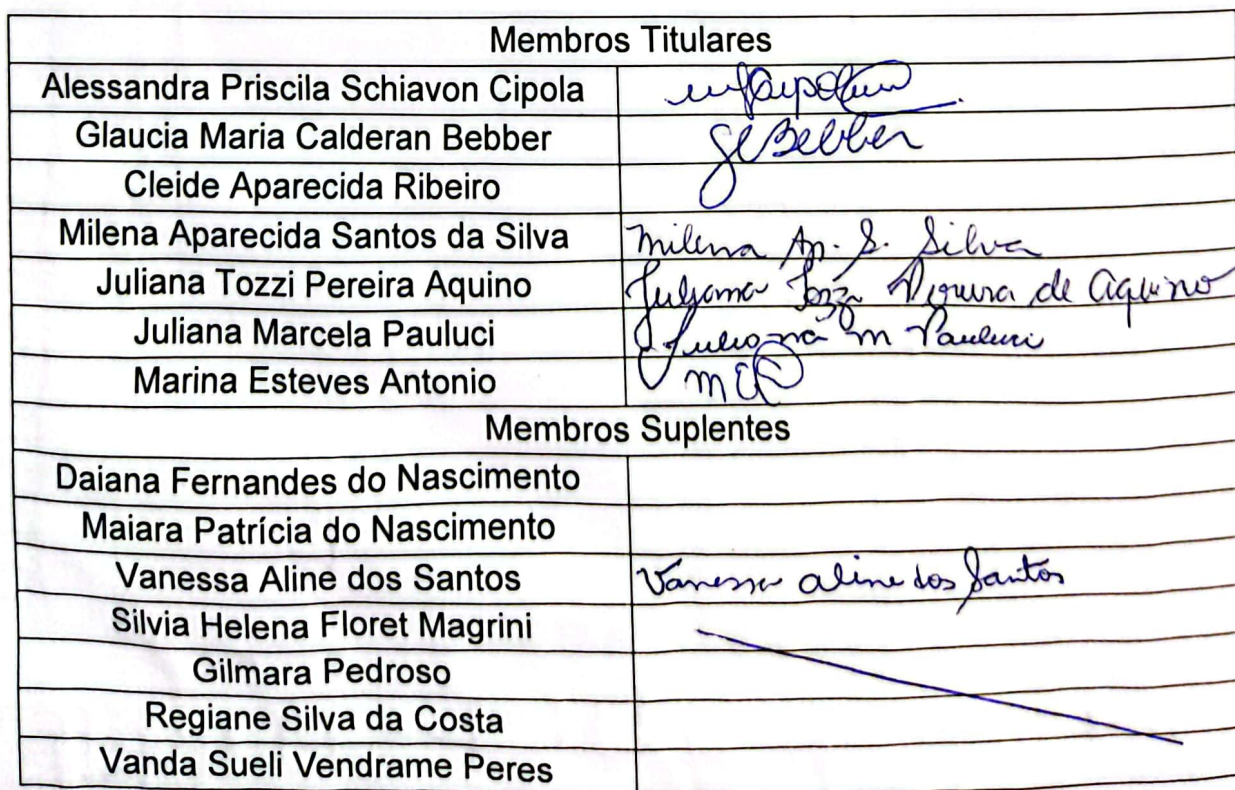 Membros Titulares
Alessandra Priscila Schiavon Cipola
Glaucia Maria Calderan Bebber GBebber
Cleide Aparecida Ribeiro
Milena Aparecida Santos da Silva Milena Ap. S. Silva
Juliana Tozzi Pereira Aquino Juliana Tozzi Pereira de Aquino
Juliana Marcela Pauluci Juliana M Pauluci
Marina Esteves Antonio
Membros Suplentes
Daiana Fernandes do Nascimento
Maiara Patrícia do Nascimento
Vanessa Aline dos Santos Vanessa Aline dos Santos
Silvia Helena Floret Magrini
Gilmara Pedroso
Regiane Silva da Costa
Vanda Sueli Vendrame Peres